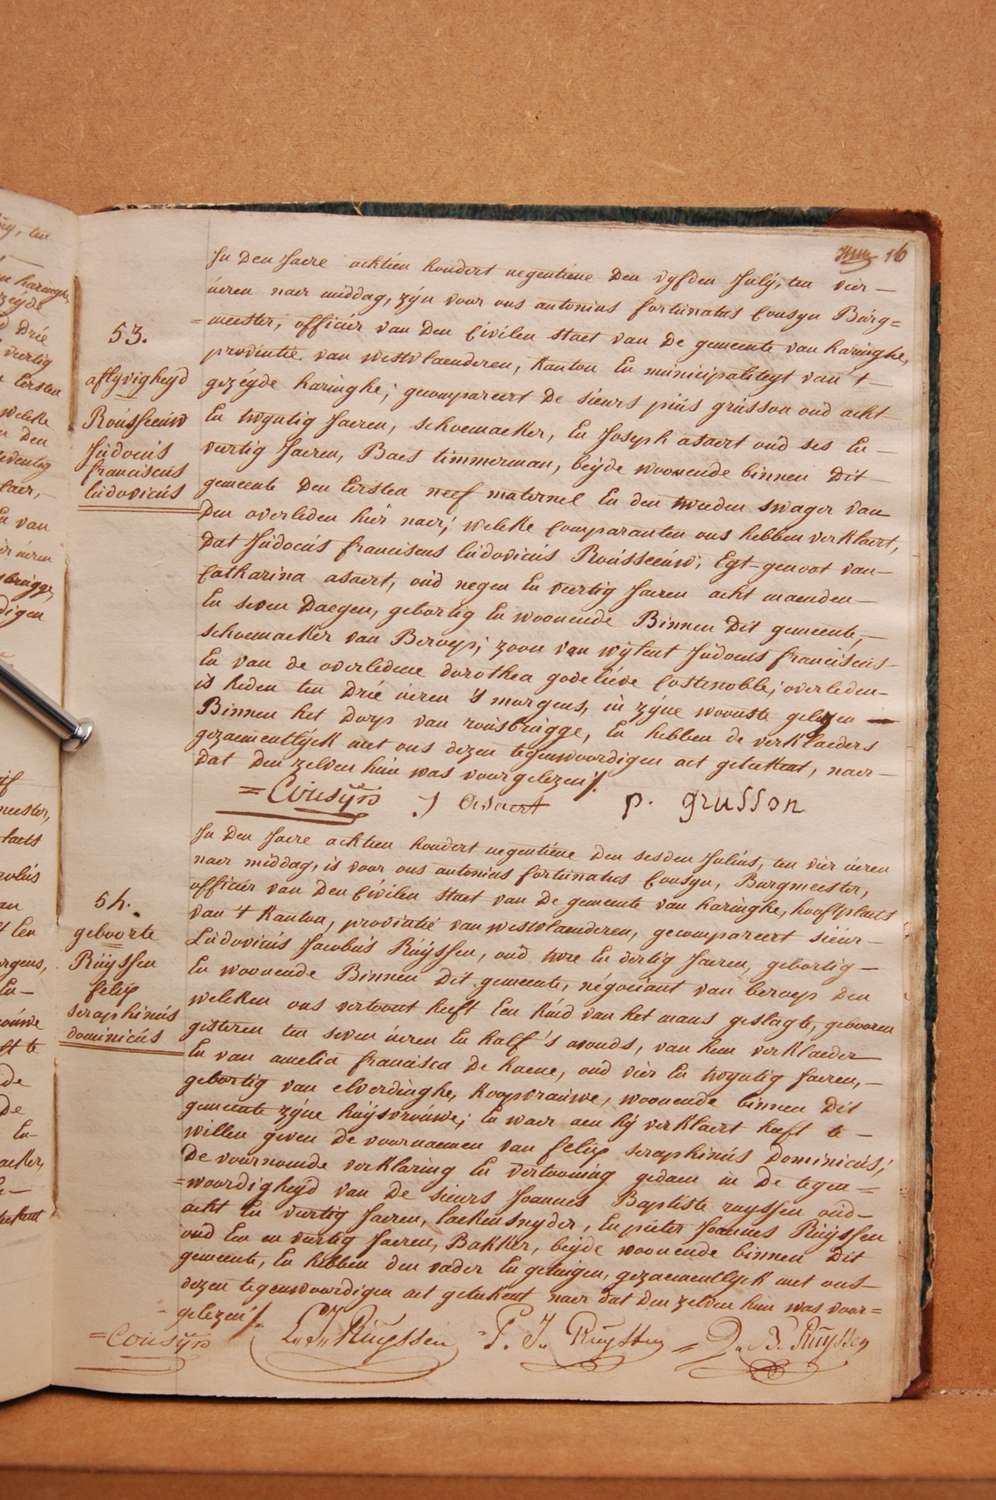 16
53.
aflyvigheyd
Rousseeuw
Judocus
franciscus
ludovicus
In den Jaere achtien hondert negentiene den vyfden July, ten vier —
ueren naer middag, zyn voor ons antonius fortunatus Cousyn Burg=
=meester, officier van den Civilen staet van de gemeente van haringhe,
provintie van westvlaenderen, Kanton En municipaliteyt van 't —
gezeyde haringhe; gecompareert de sieurs piùs grusson oud acht
En twyntig Jaeren, schoemaeker, En Joseph asaert oud ses En —
veertig Jaeren, Baes timmerman, beyde woonende binnen dit —
gemeente den Eersten neef maternel En den tweeden swager van
den overleden hier naer; welcke Comparanten ons hebben verklaert,
dat Judocus franciscus ludovicus Rousseeuw, Egt-genoot van —
Catharina asaert, oud negen En veertig Jaeren acht maenden —
En seven daegen, gebortig En woonende Binnen dit gemeente, —
schoemaeker van Beroep; zoon van wylent Judocus franciscus —
En van de overledene dorothea godelieve Costenoble; overleden —
is heden ten drie ueren 's morgens, in zyne woonste gelegen —
Binnen het dorp van rousbrugge, En hebben de verklaeders
gezaementlyck met ons dezen tegenwoordigen act geteekent, naer —
dat den zelven hun was voorgelezen /.
=Cousyn J asaert p. grusson
54.
geboorte
Ruyssen
felix
seraphinus
dominicus
In den Jaere achtien hondert negentiene den sesden Julius, ten vier ueren
naer middag, is voor ons antonius fortunatus Cousyn, Burgmeester,
officier van den Civilen staet van de gemeente van haringhe, hooftplaets
van 't Kanton, provintie van westvlaenderen, gecompareert sieur —
Ludovicus Jacobus Ruyssen, oud twee En dertig Jaeren, gebortig —
En woonende Binnen dit gemeente, négociant van beroep den
welcken ons vertoont heeft Een Kind van het mans geslagte, gebooren
gisteren ten seven ueren En half 's avonds, van hem verklaeder
En van amelia francisca De haene, oud vier En twyntig Jaeren, —
gebortig van elverdinghe, Koopvrauwe, woonende binnen dit
gemeente zyne huysvrouwe; En waer aen hy verklaert heeft te —
willen geven de voornaemen van felix seraphinus dominicus;
De voornoemde verklaring En vertooning gedaen in de tegen=
=woordigheyd van de sieurs Joannes Baptiste ruyssen oud —
acht En veertig Jaeren, laekensnyder, En pieter Joannes Ruyssen
oud Een en veertig Jaeren, Bakker, beyde woonende binnen dit
gemeente, En hebben den vader En getuigen, gezaementlyck met ons —
dezen tegenwoordigen act geteekent naer dat den zelven hun was voor=
gelezen /.
=Cousyn L. J. Ruyssen P. J. Ruyssen J. B. Ruyssen